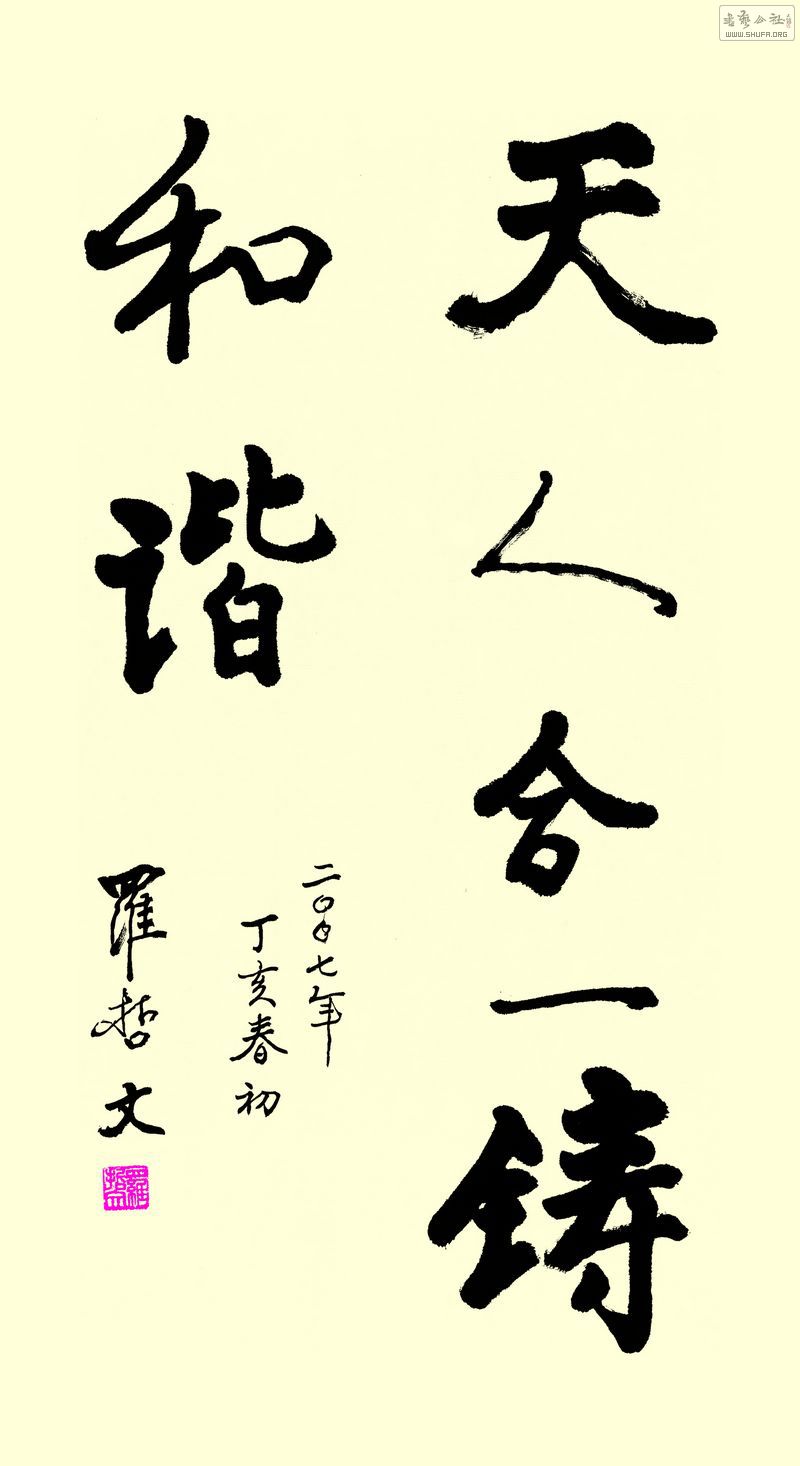 天人合一铸
和谐
二〇〇七年
丁亥春初
羅哲文
羅哲文
书艺公社
WWW.SHUFA.ORG